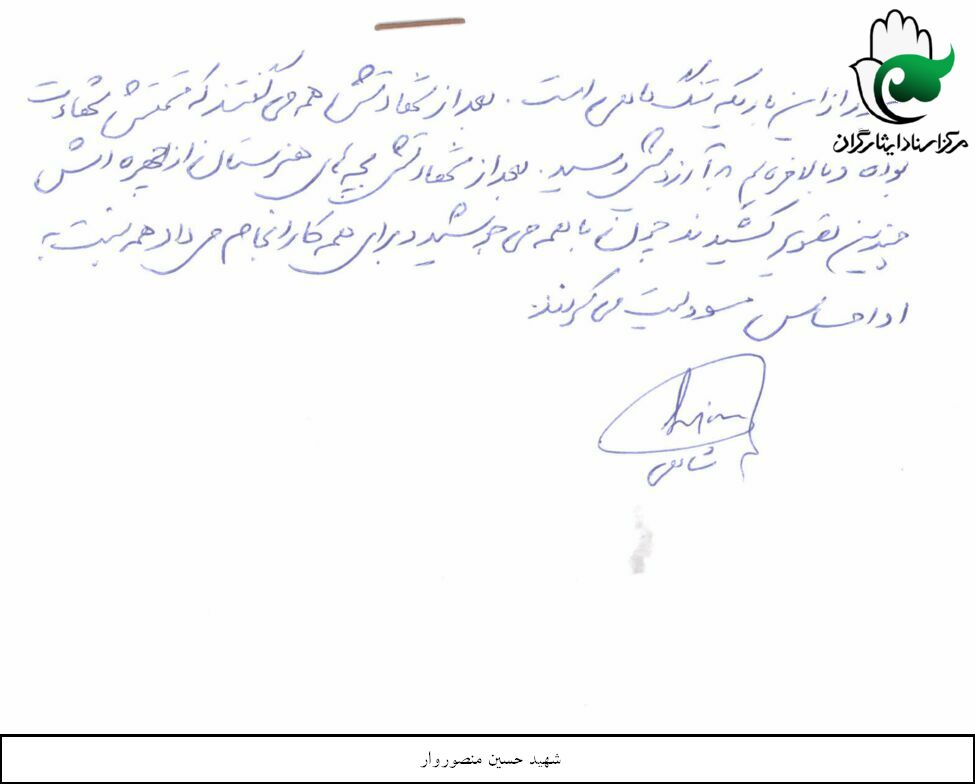 مرکز اسناد ایثارگران
از این باریکه تنگ مانعی است. بعد از شهادتش همه می گفتند که قسمتش شهادت
بوده و بالاخره هم به آرزویش رسید. بعد از شهادتش بچه های هنرستان از چهره اش
چندین تصویر کشیدند چون با همه می جوشید و برای همه کار انجام می داد همه نسبت به
او احساس مسوولیت می کردند.
شهید حسین منصوروار